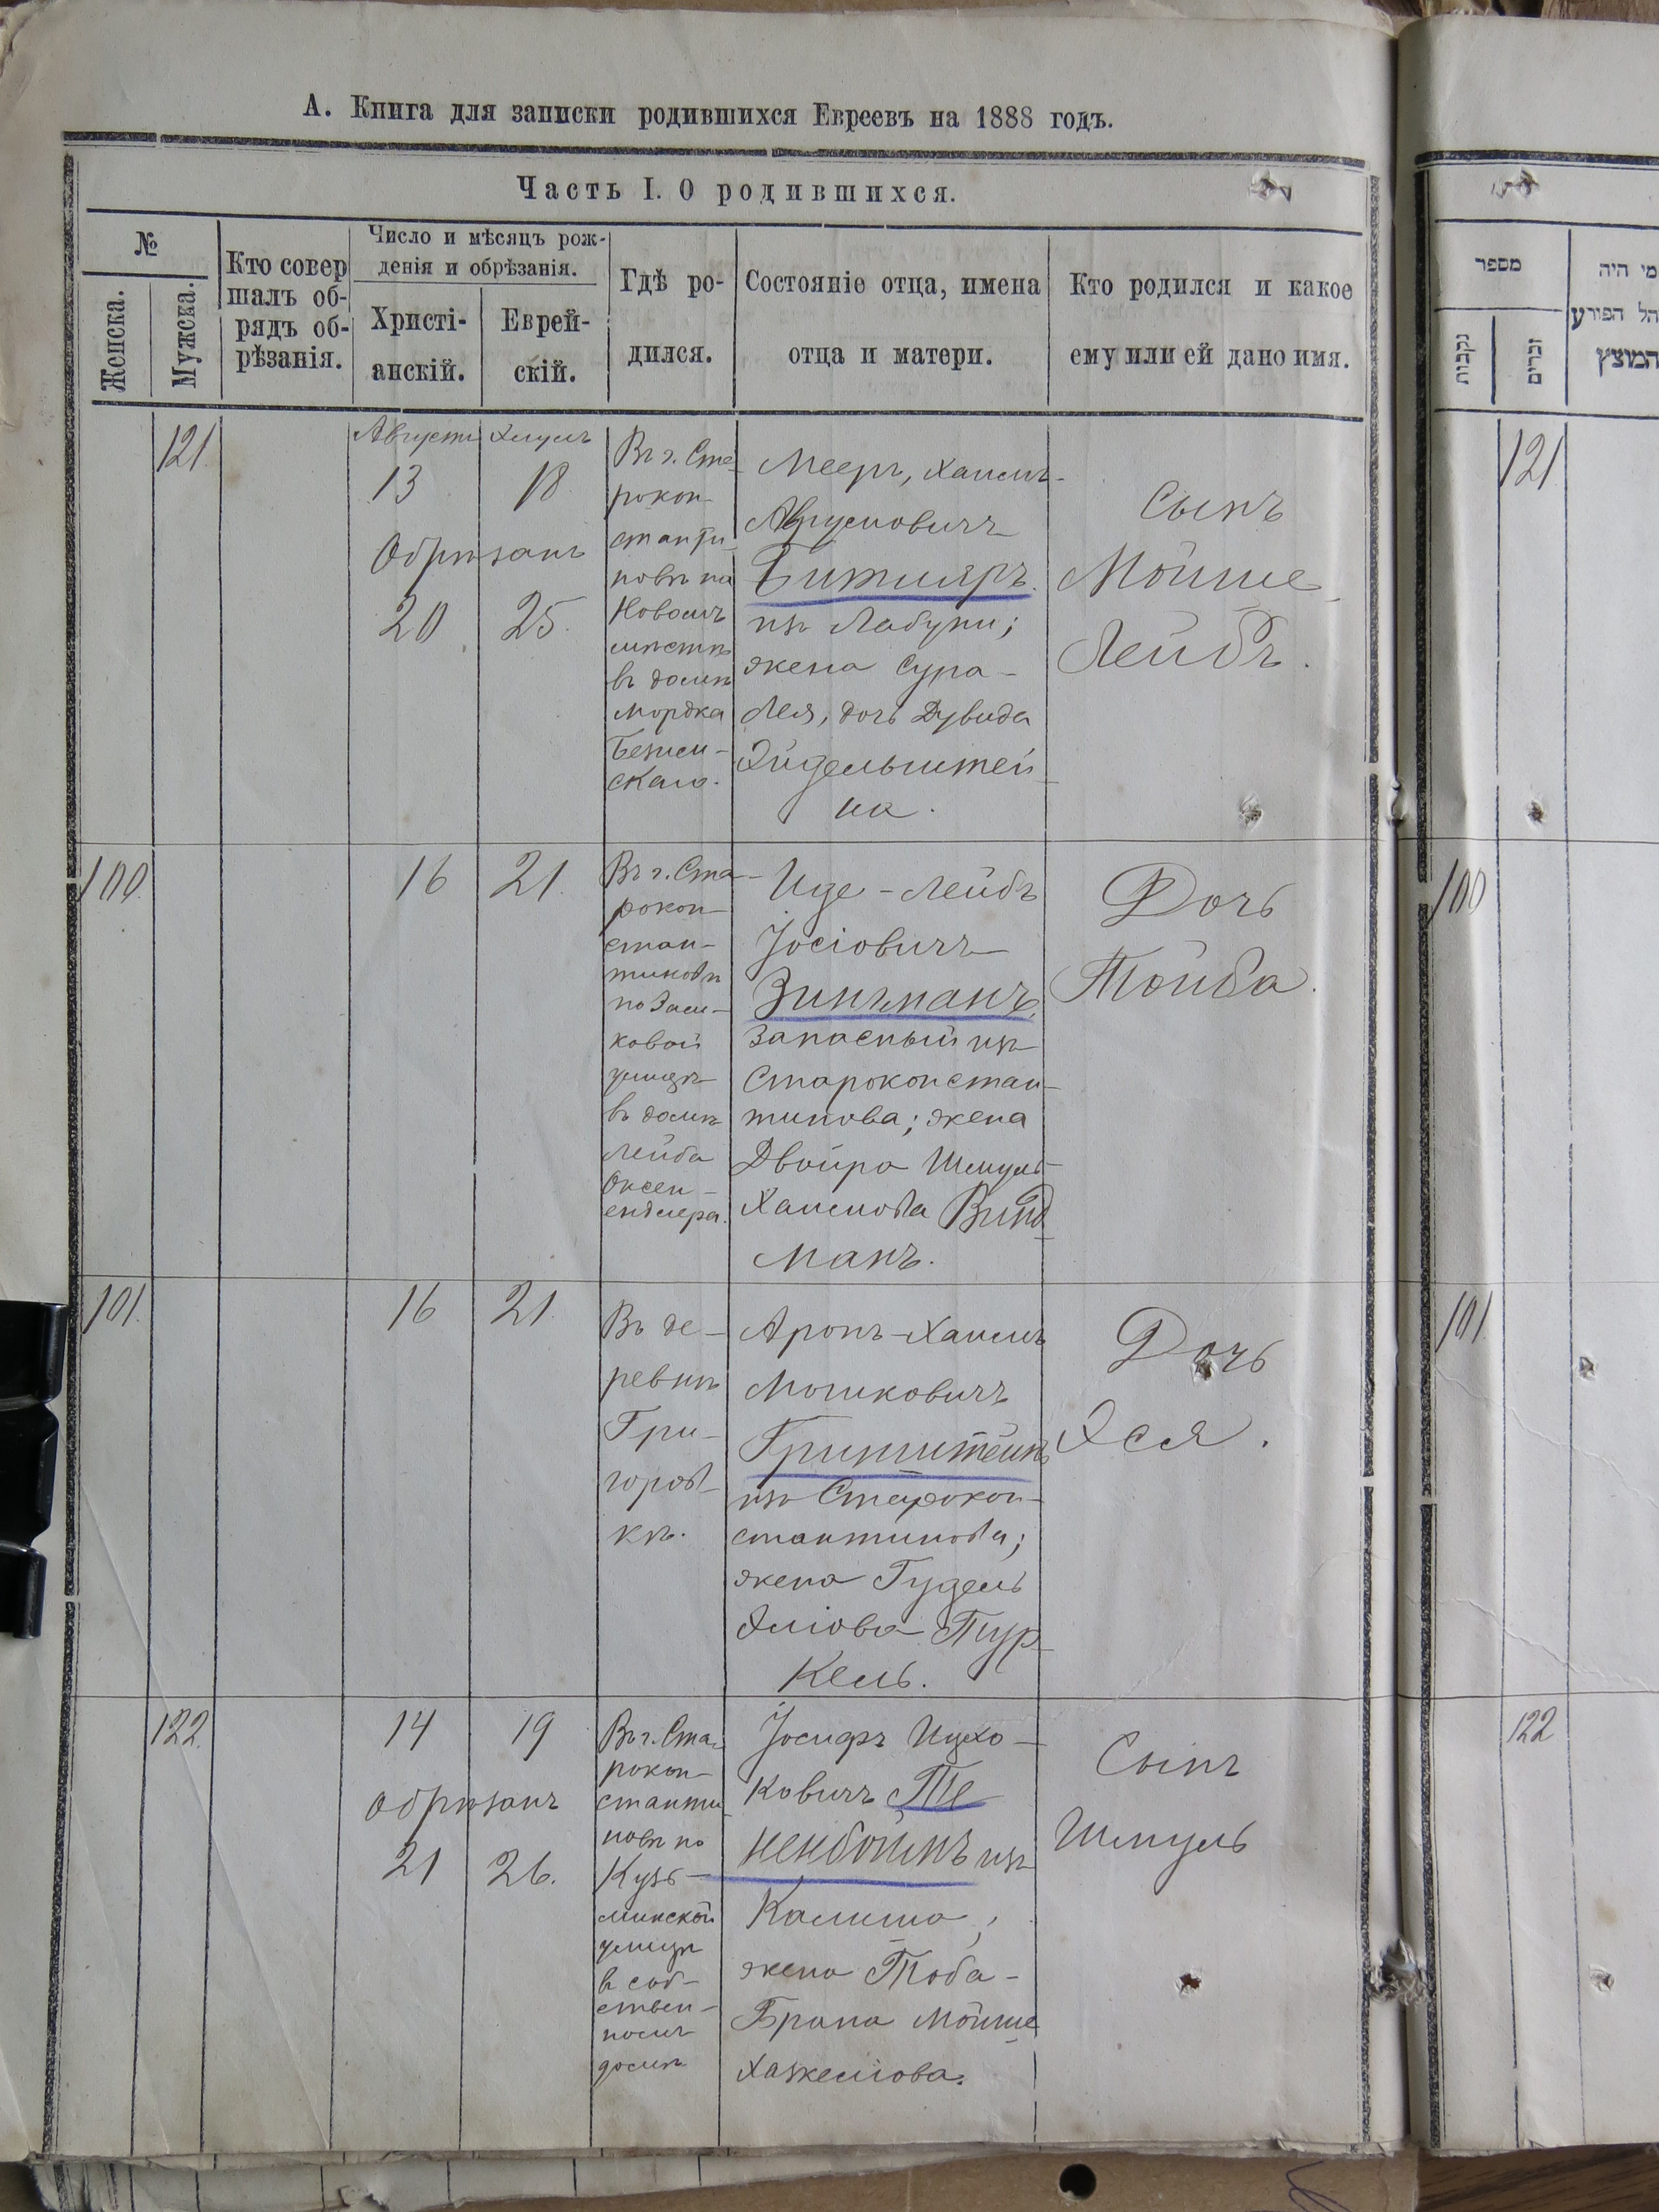 А. Книга для записки родившихся Евреевъ на 1888 годъ.
Часть I. О родившихся.
№
Женска.
Мужска.
Кто совер
шалъ об-
рядъ об-
рѣзанія.
Число и мѣсяцъ рож-
денія и обрѣзанія.
Христі-
анскій.
Еврей-
скій.
Гдѣ ро-
дился.
Состояніе отца, имена
отца и матери.
Кто родился и какое
ему или ей дано имя.
מספר
נקבות
זכרים
מי היה
הל הפורע
המוצץ
121
Августа
13
Обрѣзанъ
20
Элулъ
18
25.
Въ г. Ста
рокон-
станти-
новѣ на
Новомъ
мѣстѣ
въ домѣ
Мордка
скаго.
Мееръ, Хаимъ-
Абрумовичъ
Битмяръ
изъ Лабуни;
жена Сура-
Лея, дочь Дувида
Эйдельштей
на.
Сынъ
Мойше
Лейбъ.
121
100
16
21.
Въ г. Ста-
рокон-
стан-
тиновѣ
по Зам-
ковой
улицѣ
въ домѣ
Лейба
Оксен-
ендлера.
Иде-Лейбъ
Іосіовичъ
Зингманъ,
запасный изъ
Староконстан-
тинова; жена
Двойра Шмуль-
Хаимова Винд
манъ.
Дочь
Тойба.
100
101.
16
21.
Въ де-
ревнѣ
Гри-
горов-
кѣ.
Аронъ-Хаимъ
Мошковичъ
Гринштейнъ
изъ Старокон-
стантинова;
жена Гудель
Эліова Тур-
кель.
Дочь
Эся.
101.
122.
14
обрѣзанъ
21
19
26.
Въ г. Ста-
рокон-
станти
новѣ по
Кузь-
минской
улицѣ
въ соб-
ствен-
номъ
домѣ
Іосифъ Ицхо-
ковичъ Те
ненбоймъ изъ
жена Тоба-
Брана Мойше
Сынъ
Шмуль
122